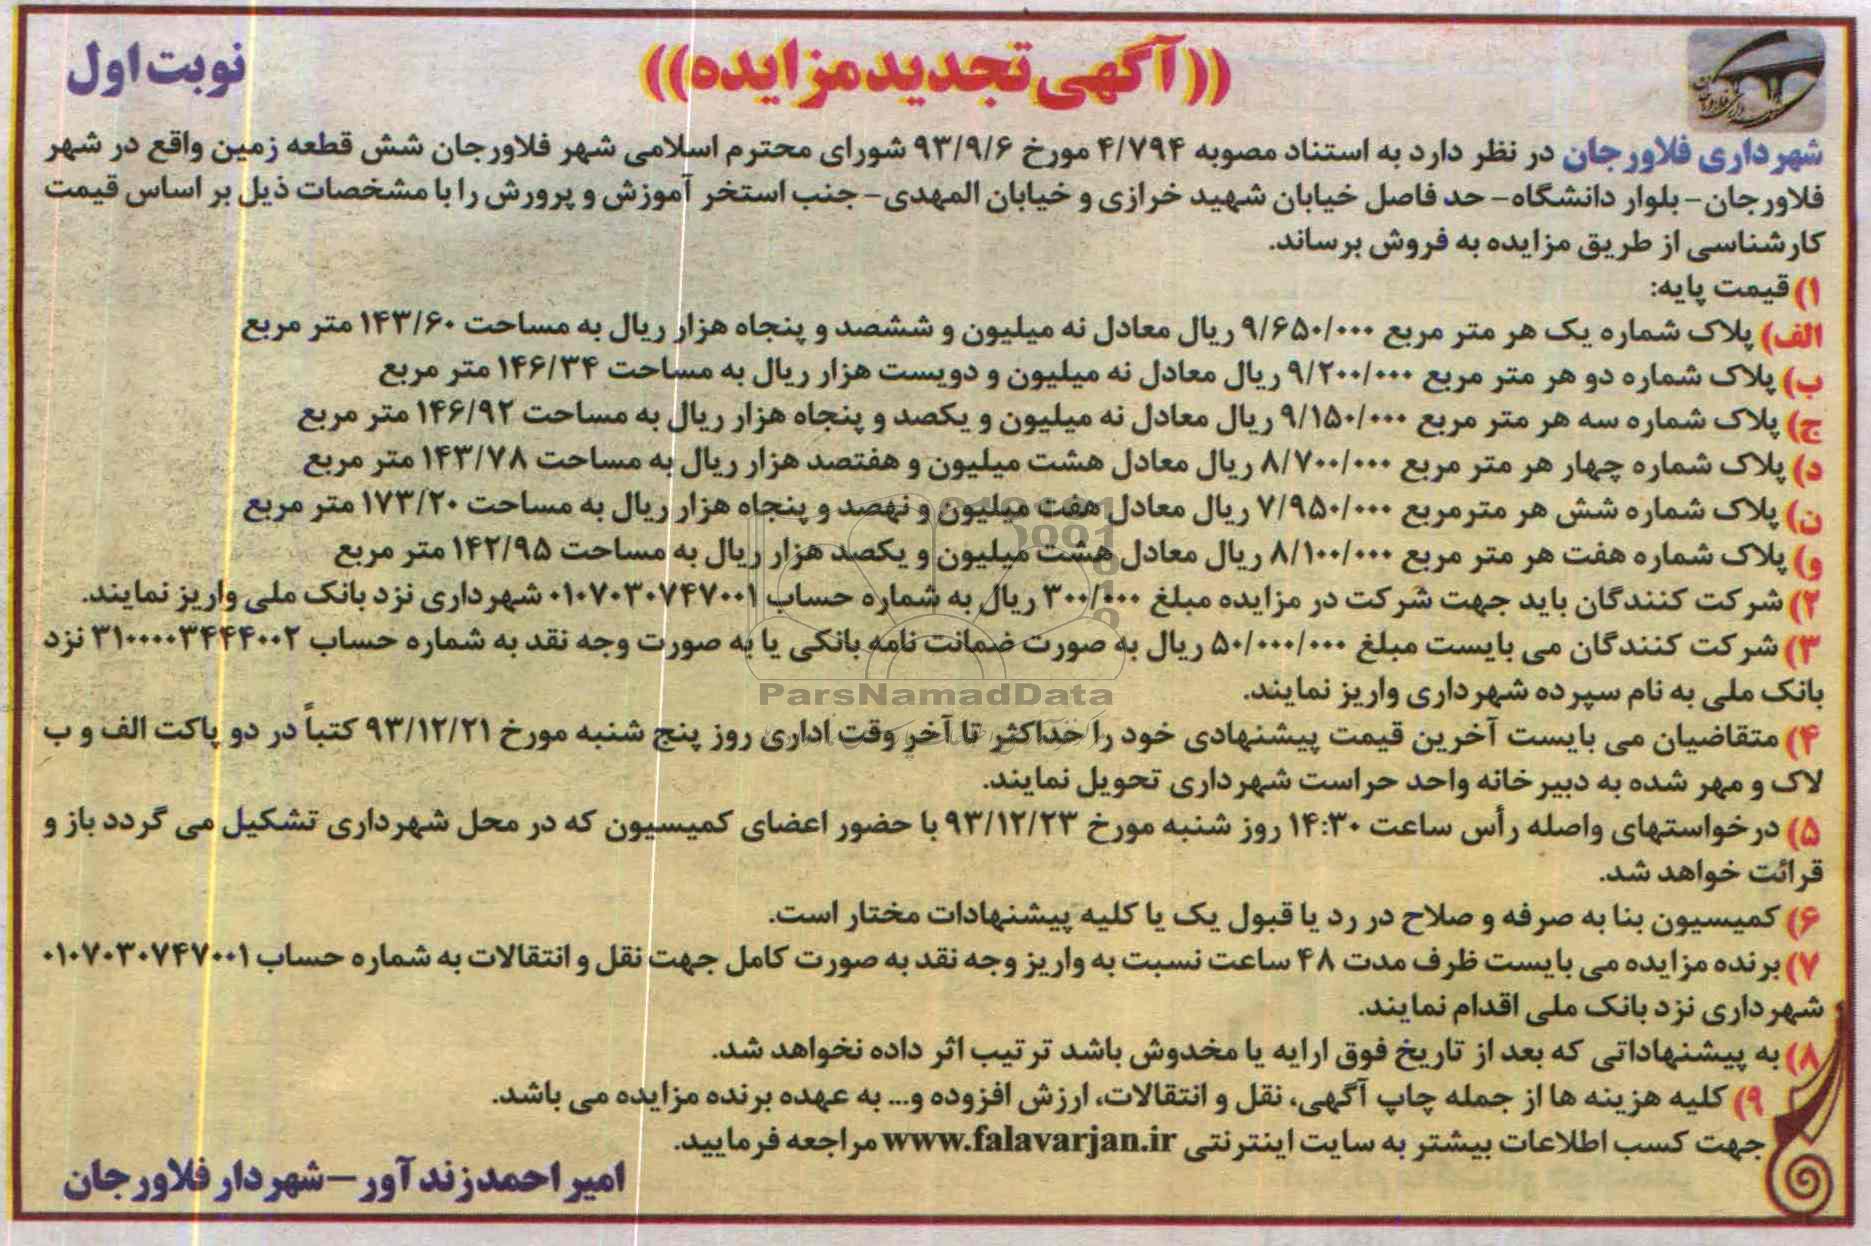 ((آگهی تجدید مزایده))
نوبت اول
شهرداری فلاورجان در نظر دارد به استناد مصوبه ۴/۷۹۴ مورخ ۹۳/۹/۶ شورای محترم اسلامی شهر فلاورجان شش قطعه زمین واقع در شهر
فلاورجان- بلوار دانشگاه- حد فاصل خیابان شهید خرازی و خیابان المهدی- جنب استخر آموزش و پرورش را با مشخصات ذیل بر اساس قیمت
کارشناسی از طریق مزایده به فروش برساند.
۱) قیمت پایه:
الف) پلاک شماره یک هر متر مربع ۹/۶۵۰/۰۰۰ ریال معادل نه میلیون و ششصد و پنجاه هزار ریال به مساحت ۱۴۳/۶۰ متر مربع
ب) پلاک شماره دو هر متر مربع ۹/۲۰۰/۰۰۰ ریال معادل نه میلیون و دویست هزار ریال به مساحت ۱۴۶/۳۴ متر مربع
ج) پلاک شماره سه هر متر مربع ۹/۱۵۰/۰۰۰ ریال معادل نه میلیون و یکصد و پنجاه هزار ریال به مساحت ۱۴۶/۹۲ متر مربع
د) پلاک شماره چهار هر متر مربع ۸/۷۰۰/۰۰۰ ریال معادل هشت میلیون و هفتصد هزار ریال به مساحت ۱۴۳/۷۸ متر مربع
ن) پلاک شماره شش هر مترمربع ۷/۹۵۰/۰۰۰ ریال معادل هفت میلیون و نهصد و پنجاه هزار ریال به مساحت ۱۷۳/۲۰ متر مربع
و) پلاک شماره هفت هر متر مربع ۸/۱۰۰/۰۰۰ ریال معادل هشت میلیون و یکصد هزار ریال به مساحت ۱۴۲/۹۵ متر مربع
۲) شرکت کنندگان باید جهت شرکت در مزایده مبلغ ۳۰۰/۰۰۰ ریال به شماره حساب ۰۱۰۷۰۳۰۷۴۷۰۰۱ شهرداری نزد بانک ملی واریز نمایند.
۳) شرکت کنندگان می بایست مبلغ ۵۰/۰۰۰/۰۰۰ ریال به صورت ضمانت نامه بانکی یا به صورت وجه نقد به شماره حساب ۳۱۰۰۰۰۳۴۴۴۰۰۲ نزد
بانک ملی به نام سپرده شهرداری واریز نمایند.
۴) متقاضیان می بایست آخرین قیمت پیشنهادی خود را حداکثر تا آخر وقت اداری روز پنج شنبه مورخ ۹۳/۱۲/۲۱ کتباً در دو پاکت الف و ب
لاک و مهر شده به دبیرخانه واحد حراست شهرداری تحویل نمایند.
۵) درخواستهای واصله رأس ساعت ۱۴:۳۰ روز شنبه مورخ ۹۳/۱۲/۲۳ با حضور اعضای کمیسیون که در محل شهرداری تشکیل می گردد باز و
قرائت خواهد شد.
۶) کمیسیون بنا به صرفه و صلاح در رد یا قبول یک یا کلیه پیشنهادات مختار است.
۷) برنده مزایده می بایست ظرف مدت ۴۸ ساعت نسبت به واریز وجه نقد به صورت کامل جهت نقل و انتقالات به شماره حساب ۰۱۰۷۰۳۰۷۴۷۰۰۱
شهرداری نزد بانک ملی اقدام نمایند.
۸) به پیشنهاداتی که بعد از تاریخ فوق ارایه یا مخدوش باشد ترتیب اثر داده نخواهد شد.
۹) کلیه هزینه ها از جمله چاپ آگهی، نقل و انتقالات، ارزش افزوده و... به عهده برنده مزایده می باشد.
جهت کسب اطلاعات بیشتر به سایت اینترنتی www.falavarjan.ir مراجعه فرمایید.
امیر احمد زند آور - شهردار فلاورجان
ParsNamadData